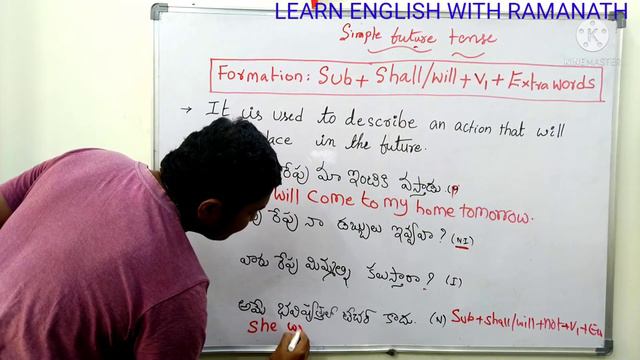 LEARN ENGLISH WITH RAMANATH
Simple future tense
KINEMASTER
Formation: Sub + Shall/will + V1 + Extra words
→ It is used to describe an action that will
place in the future.
రేపు మా ఇంటికి వస్తాడు. (P)
will Come to my home tomorrow.
రేపు నా డబ్బులు ఇవ్వవా? (NI)
వారు రేపు మిమ్మల్ని కలుస్తారా? (I)
ఆమె భవిష్యత్తులో టీచర్ కాదు. (N) Sub + shall/will + not + V1 + Ex
She w